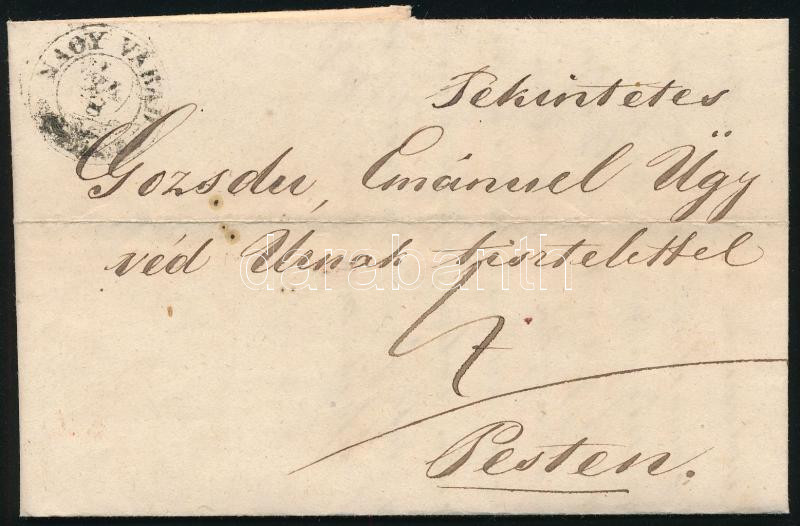 NAGY VÁRAD
Tekintetes
Gozsdu, Emánuel Ügy
véd Urnak tisztelettel
darabanth
Pesten.